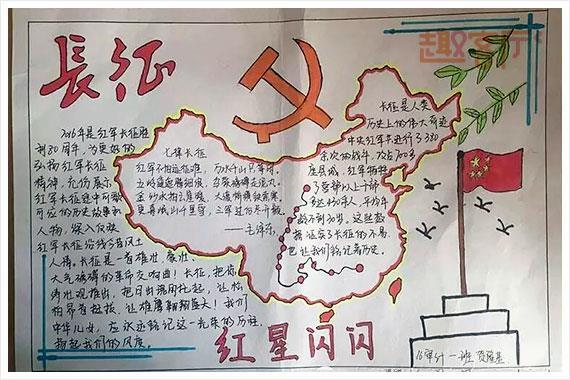 長征
2016年是红军长征胜
利80周年,为更好的
弘扬红军长征
精神,充分展示
红军长征途中可歌
可泣的历史故事和
人物,深入反映
红军长征沿线今昔风土
人情。长征是一首雄壮、豪壮
大气磅礴的革命交响曲!长征,把
七律长征
红军不怕远征难,
万水千山只等闲。
五岭逶迤腾细浪,
乌蒙磅礴走泥丸。
金沙水拍云崖暖,
大渡桥横铁索寒。
更喜岷山千里雪,
三军过后尽开颜。
——毛泽东
长征是人类
历史上的伟大奇迹
中央红军共进行了380
余次的战斗,攻占700多
座县城,红军牺牲
了营以上干部
多达430余人,平均年
龄不到30岁。这些数
据证实了长征的不易,
也让我们铭记着历史。
中华儿女,应永远铭记这一光荣的历程,
红星闪闪